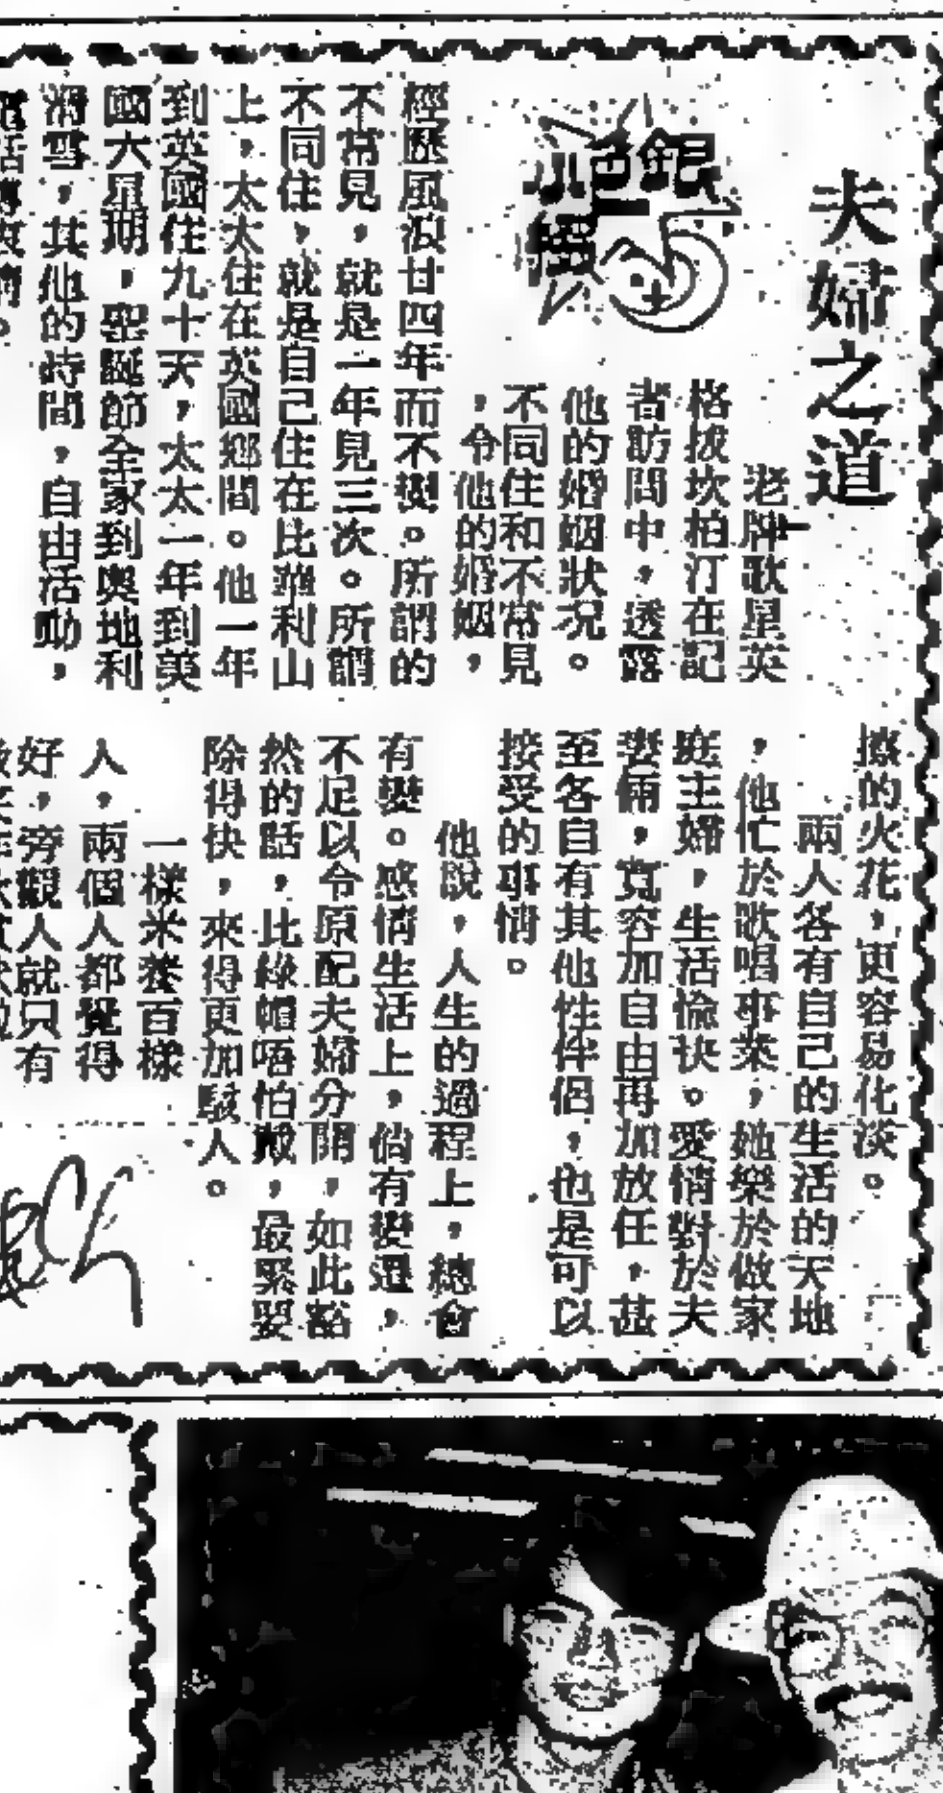 夫婦之道
銀色小段
老牌歌星英
格拔坎柏汀在記
者訪問中，透露
他的婚姻狀況。
不同住和不常見
，令他的婚姻，
經歷風浪廿四年而不變。所謂的
不常見，就是一年見三次。所謂
不同住，就是自己住在比華利山
上，太太住在英國鄉間。他一年
到英國住九十天，太太一年到美
國六星期，聖誕節全家到奧地利
滑雪，其他的時間，自由活動，
電話傳衷情。
擦的火花，更容易化淡。
兩人各有自己的生活的天地
，他忙於歌唱事業，她樂於做家
庭主婦，生活愉快。愛情對於夫
妻倆，寬容加自由再加放任，甚
至各自有其他性伴侶，也是可以
接受的事情。
他說，人生的過程上，總會
有變。感情生活上，倘有變遷，
不足以令原配夫婦分開，如此豁
然的話，比綠帽唔怕戴，最緊要
除得快，來得更加駭人。
一樣米養百樣
人，兩個人都覺得
好，旁觀人就只有